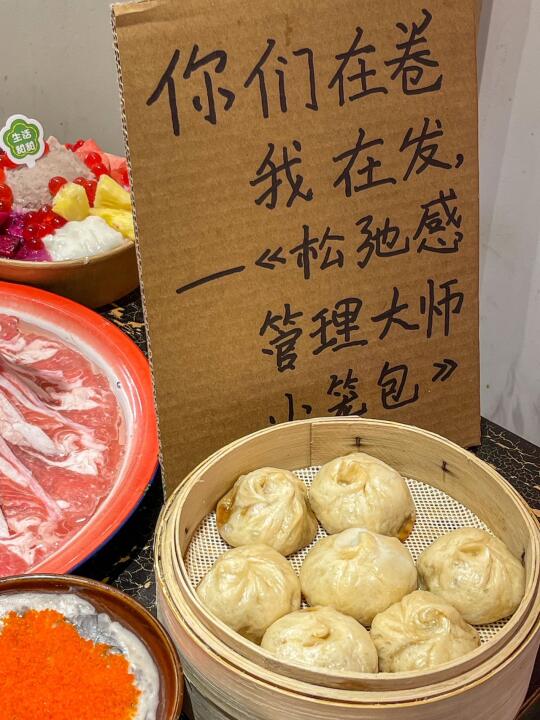 生活
甜甜
你们在卷
我在发,
—《松弛感
管理大师
小笼包》